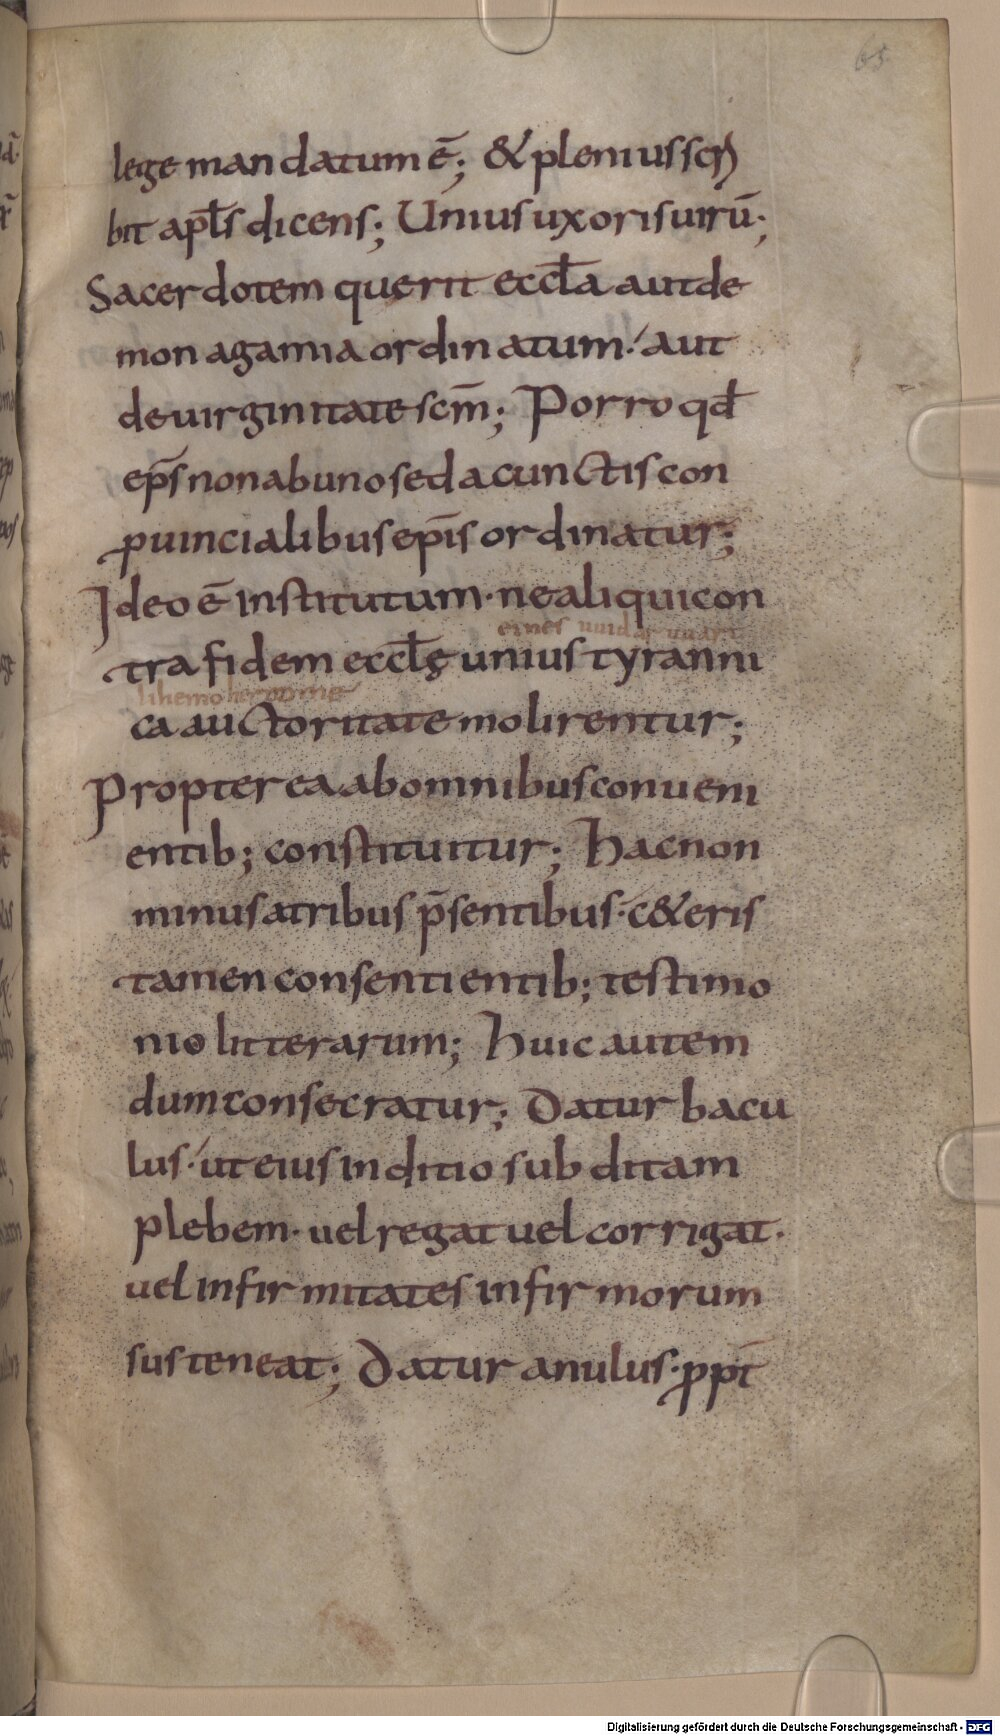 65
lege mandatum ē; & plenius scri
bit apl̄s dicens; Unius uxoris uirū;
Sacerdotem querit eccl̄a aut de
monagamia ordinatum; aut
de uirginitate scm̄; Porro qd̄
ep̄s non ab uno sed a cunctis con
ꝓuincialibus ep̄is ordinatur;
Ideo ē institutum · ne aliqui con
eines uuidaruuart
tra fidem eccl̄ę unius tyranni
ca auctoritate molirentur;
Propterea ab omnibus conueni
entib; constituitur; Hac non
minus a tribus p̄sentibus · c&eris
tamen consentientib; testimo
nio litterarum; Huic autem
dum consecratur; Datur bacu
lus · ut eius inditio subditam
plebem · uel regat uel corrigat ·
uel infirmitates infirmorum
susteneat; Datur anulus · ꝓpt̄
Digitalisierung gefördert durch die Deutsche Forschungsgemeinschaft - DFG